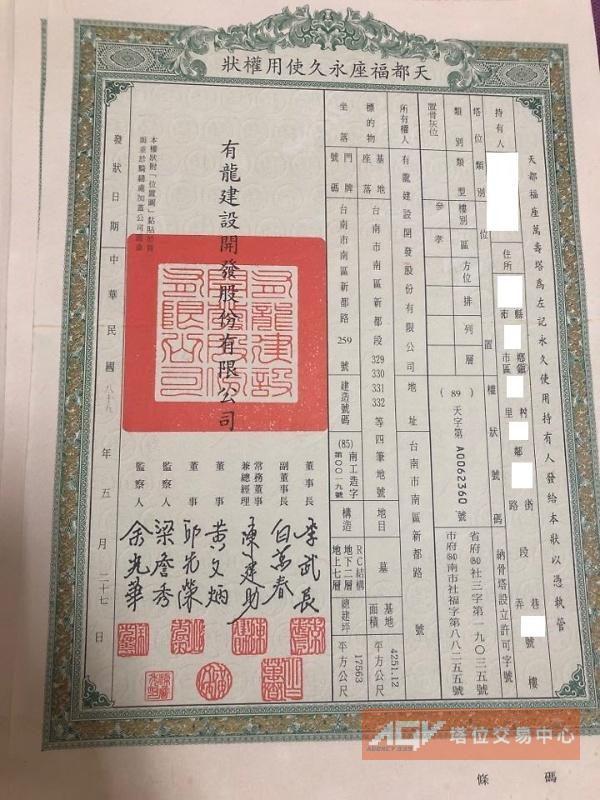 天都福座永久使用權狀
天都福座萬壽塔爲左記永久使用持有人發給本狀以憑執管
持有人
住所
縣市
鄉鎮市區
村里
鄰
路街
段
巷弄
號
樓
塔位類別
位置
權狀號碼
納骨塔設立許可字號
類別
類型
樓別
區
方位
排
列
層
(89)
天字第A0062360號
省府(80)社三字第一九〇三五號
市府(80)南市社福字第八八二五五號
置骨灰位
參孝
所有權人
有龍建設開發股份有限公司
地址
台南市南區新都路
號
標的物
坐落
基地座落
台南市南區新都段
329
330
331
332
等四筆地號
地目
墓
基地面積
4251.12
平方公尺
門牌號碼
台南市南區新都路259號
建造號碼
(85)南工造字
第〇〇一九號
構造
RC結構
地下二層
地上七層
總建坪
17563
平方公尺
有龍建設開發股份有限公司
董事長
李武長
副董事長
白萬春
常務董事
兼總經理
陳建助
董事
黃文炳
董事
邱先榮
監察人
梁詹秀
監察人
余光華
發狀日期
中華民國八十九年五月二十七日
AGV
AGENCY.999
塔位交易中心
條碼